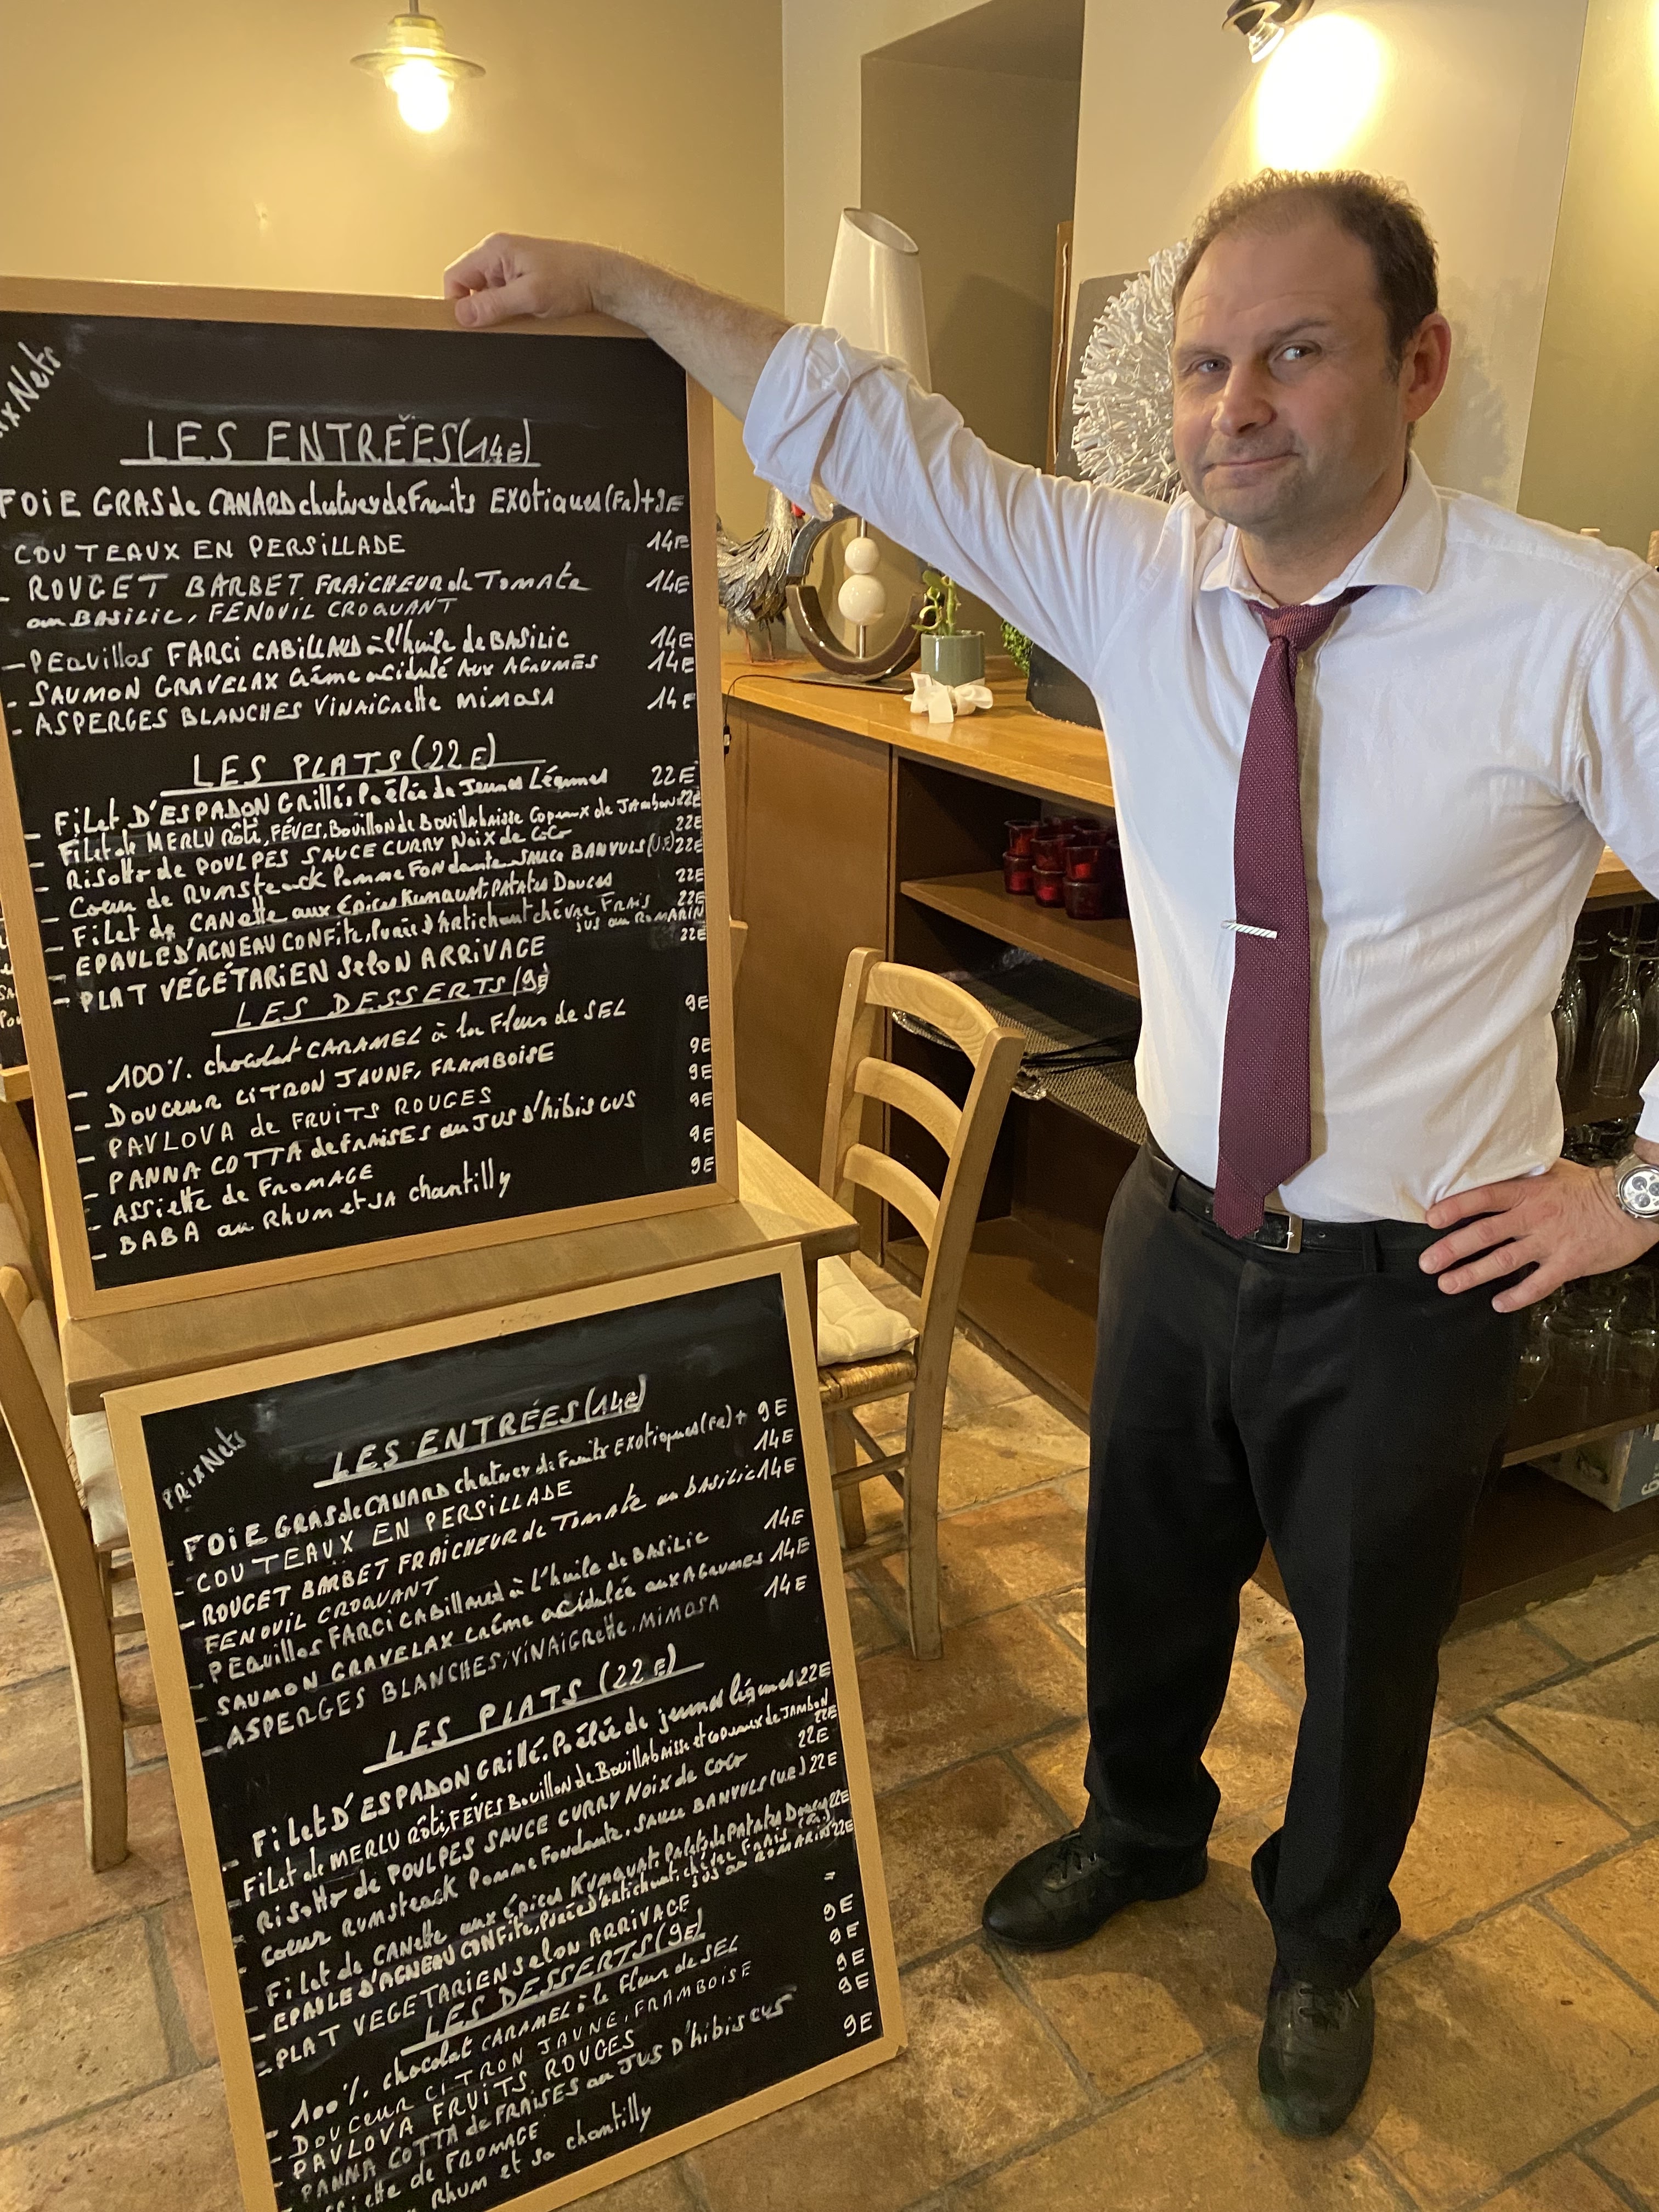 LES ENTRÉES (14E)
FOIE GRAS de CANARD chutney de Fruits EXOTiques (FR) + 9E
COUTEAUX EN PERSiLLADE 14E
- ROUGET BARBET FRAÎCHEUR de TomAte 14E
au BASiLic, FENOUiL CROQUANT
- PEquillos FARCi CABiLLAUD à l'huile de BASiLiC 14E
- SAUMON GRAVELAX Crème acidulé Aux AGRUMES 14E
- ASPERGES BLANCHES ViNAiGRette MimosA 14E
LES PLATS (22E)
- FiLet D'ESPADON GRillé, Poêlée de Jeunes Légumes 22E
- FiLet de MERLU Rôti, FÉVES, Bouillon de Bouillabaisse Copeaux de JAmbon 22E
- RiSotto de POULPES SAUCE CURRY NOiX de COCO 22E
- Coeur de RUMSteack Pomme FONdante SAUCE BANYULS (U.E) 22E
- FiLet de CANette aux Épices Kumquat, PATATES Douces 22E
- EPAULE D'AGNEAU CONFite, Purée D'ARtichaut chèvre FRAiS 22E
JUS au RomARiN
- PLAT VÉGÉTARiEN SeLoN ARRiVAGE 22E
LES DESSERTS (9E)
- 100% chocolat CARAMEL à la Fleur de SEL 9E
- DOUceuR CiTRON JAUNE, FRAMBOiSE 9E
- PAVLOVA de FRUiTS ROUGES 9E
- PANNA COTTA de FRAiSES au JUS D'hibiscus 9E
- ASSiette de FROMAGE 9E
- BABA au Rhum et SA chantilly 9E
PRiX Nets
LES ENTRÉES (14E)
FOiE GRAS de CANARD chutney de Fruits EXOTiques (FR) + 9E
- COUTEAUX EN PERSiLLADE 14E
- ROUGET BARBET FRAÎCHEUR de TomAte au bASiLic 14E
FENOUiL CROQUANT
- PEquillos FARCi CABillaud à L'huile de BASiLiC 14E
- SAUMON GRAVELAX CRème acidulée aux AGRUMES 14E
- ASPERGES BLANCHES, ViNAiGRette, MiMOSA 14E
LES PLATS (22E)
- FiLet D'ESPADON GRiLLé. Poêlée de jeunes légumes 22E
- FiLet de MERLU Rôti, FÉVES Bouillon de Bouillabaisse et copeaux de JAMbON 22E
- RiSotto de POULPES SAUCE CURRY NOiX de COCO 22E
- Coeur RUMSteack Pomme FONdante. SAUCE BANYULS (U.E) 22E
- FiLet de CANette aux Épices KUMQUAT. PATATES Douces 22E
- EPAULE D'AGNEAU CONFite, Purée D'ARtichaut. chèvre FRAiS
JUS au ROMARiN 22E
- PLAT VEGETARiEN SeLoN ARRiVAGE
LES DESSERTS (9E)
- 100% chocolat CARAMEL à la Fleur de SEL 9E
- DOUceuR CiTRON JAUNE, FRAMBOiSE 9E
- PAVLOVA FRUiTS ROUGES 9E
- PANNA COTTA de FRAiSES au JUS D'hibiscus 9E
de FROMAGE 9E
Rhum et sa chantilly